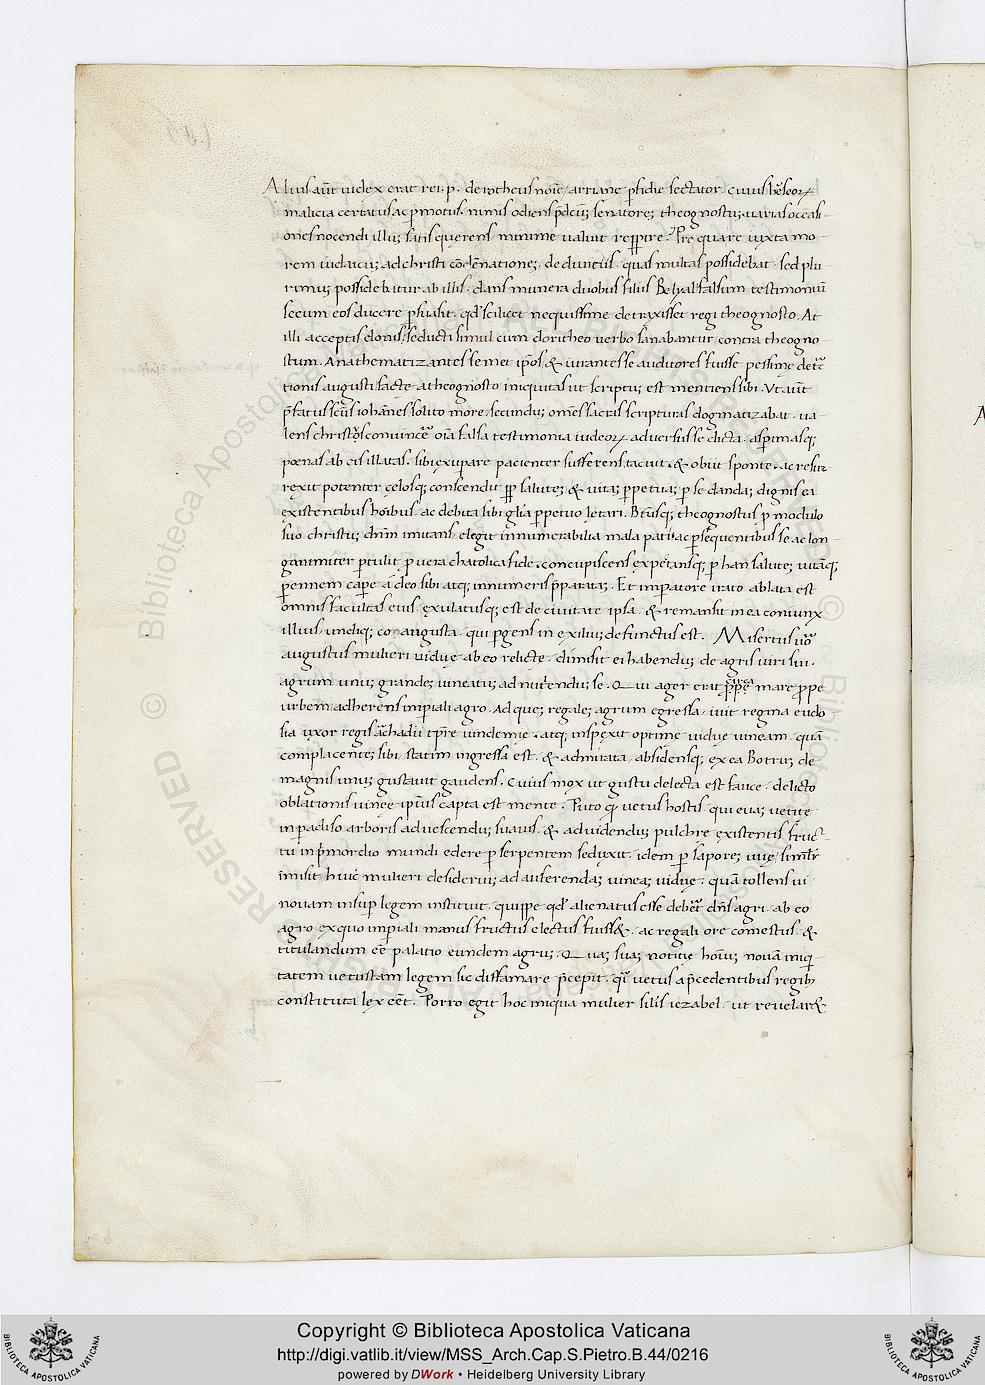 Alius aũt iudex erat rei. p. dorotheus noĩe, arriane ꝑfidie sectator. cuius hȩseoꝝ
malicia certatus ac ꝑmotus. nimis odiens p̃dcũ senatorẽ theognostũ. uarias occasi
ones nocendi illiꝰ satis querens minime ualuit repꝑire. quare iuxta mo
rem iudaicũ ad christi cõdẽnationẽ. de diuitiis. quas multas possidebat. sed plu
rimũ possidebatur ab illis. dans munera duobus filiis Belyal falsum testimoniũ
secum eos ducere ꝑsuasit. qđ scilicet nequissime detraxisset regi theognosto. At
illi acceptis donis. seducti simul cum dorotheo verbo contra theogno
stum. Anathematizantes semet ip̃os, & iurantes se auditores fuisse pessime detc̃
tionis augusti facte a theognosto. iniquitas ut scriptũ est mentiens sibi. Vt aũt
p̃fatus scũs iohãnes solito more. secundũ omẽs sacras scripturas dogmatizabat. ua
lens christꝰ conuincẽ oĩa falsa testimonia iudeoꝝ aduersus se dicta. asꝑrimasq;
poenas ab eis illatas. sibi exuꝑare pacienter sufferens tacuit. & obiit sponte. ac resur
rexit potenter, cȩlosq; conscendit salutẽ & uitã ꝑpetuã ꝑ se dandã dignis ea
existentibus hõibus. ac debita sibi glĩa ꝑpetuo lȩtari. Btũsq; theognostus ꝑ modulo
suo christũ dñm imitans. elegit innumerabilia mala pati. ac ꝑsequentibus se ac lon
ganimiter ꝑtulit ꝑ uera chatolica fide. concupiscens expetansq; ꝑ hanc salutẽ uitãq;
ꝑennem capẽ a deo sibi atq; innumeris p̃paratã. Et imꝑatore irato ablata est
omnis facultas eius. exulatusq; est de ciuitate ipsa. & remansit in ea coniunx
illius undiq; coangusta. qui ꝑgens in exiliũ defunctus est. Misertus uõ
augustus mulieri uiduȩ ab eo relictȩ. dimisit ei habendũ de agris uiri sui.
agrum unũ grandẽ uineatũ ad nutriendũ se. Qui ager erat circa mare prope
urbem. adherens imꝑiali agro. Ad quẽ regalẽ agrum egressa. iuit regina eudo
sia uxor regis archadii tp̃re uindemie. atq; inspexit optime uiduȩ uineam. quã
complacentẽ sibi. statim ingressa est. & admirata, absidensq; ex ea Botrũ de
magnis unũ gustauit gaudens. Cuius mox ut gustu delecta est fauce. delicto
oblationis uineȩ ipsius capta est mente. Puto qꝫ vetus hostis qui euã vetitȩ
in paradiso arboris ad uescendũ suauis. & ad uidendũ pulchrȩ existentis fruc
tũ in p̃mordio mundi edere ꝑ serpentem seduxit. idem ꝑ saporẽ uuȩ simil̃r
imisit huic mulieri desideriũ ad auferendã uineã uiduȩ. quã tollens ui
nouam insuꝑ legem instituit. quippe qđ alienatus esse debet dñs agri. ab eo
agro ex quo imꝑiali manus fructus electus fuiss&. ac regali ore comestus. &
titulandum eẽ palatio eundem agrũ. Quã suã notitie hoĩus nouã iniqui
tatem uetustam legem sic diffamare p̃cepit. qñ vetus a p̃cedentibus regibꝫ
constituta lex eẽt. Porro egit hoc iniqua mulier sil̃is iezabel. ut reuelar&
Copyright © Biblioteca Apostolica Vaticana
http://digi.vatlib.it/view/MSS_Arch.Cap.S.Pietro.B.44/0216
powered by DWork • Heidelberg University Library